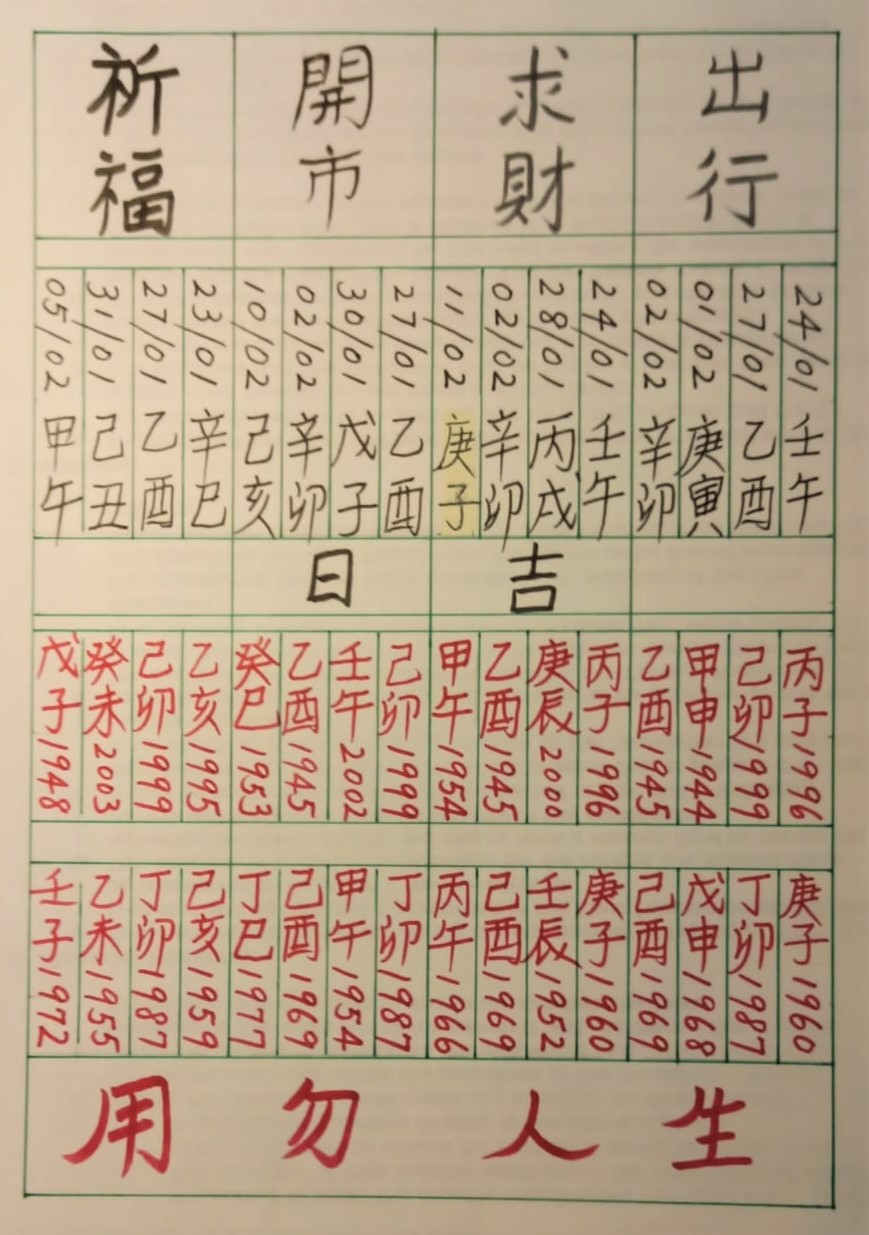 出行
求財
開市
祈福
24/01 壬午
27/01 乙酉
01/02 庚寅
02/02 辛卯
24/01 壬午
28/01 丙戌
02/02 辛卯
11/02 庚子
27/01 乙酉
30/01 戊子
02/02 辛卯
10/02 己亥
23/01 辛巳
27/01 乙酉
31/01 己丑
05/02 甲午
吉日
丙子1996
己卯1999
甲申1944
乙酉1945
丙子1996
庚辰2000
乙酉1945
甲午1954
己卯1999
壬午2002
乙酉1945
癸巳1953
乙亥1995
己卯1999
癸未2003
戊子1948
庚子1960
丁卯1987
戊申1968
己酉1969
庚子1960
壬辰1952
己酉1969
丙午1966
丁卯1987
甲午1954
己酉1969
丁巳1977
己亥1959
丁卯1987
乙未1955
壬子1972
生人勿用